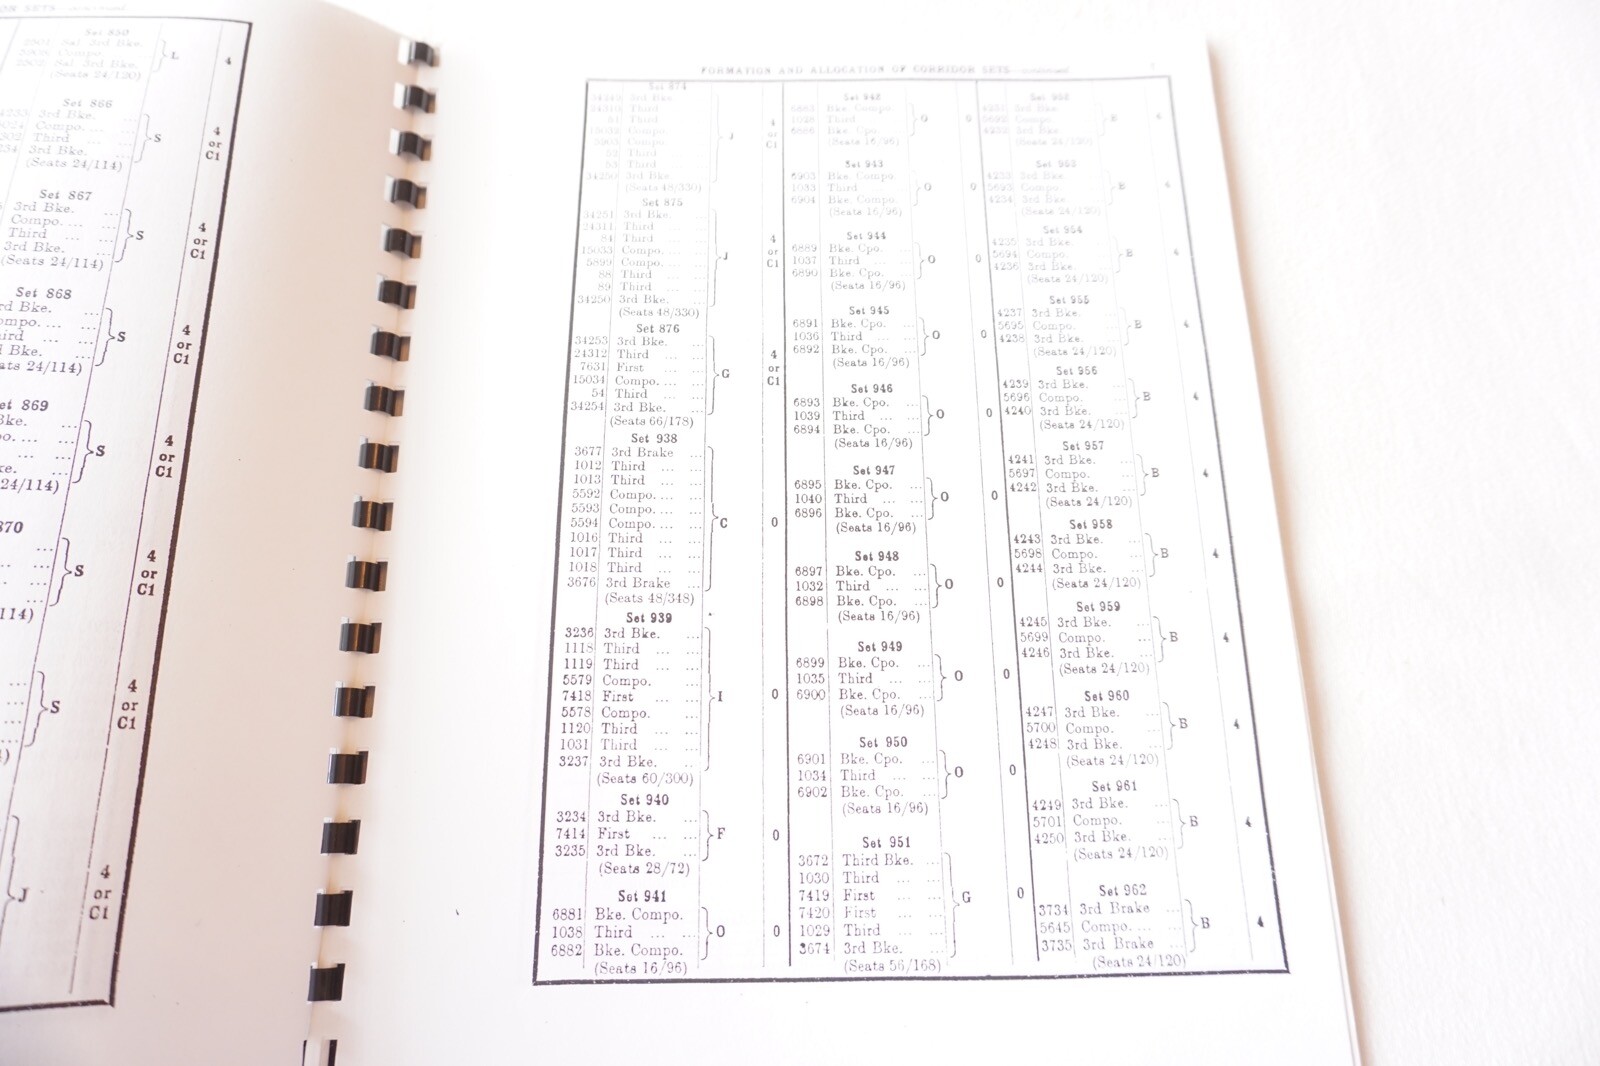 Set 850
Sal. 3rd Bke.
Compo.
Sal. 3rd Bke.
(Seats 24/120)
L
4
Set 866
3rd Bke.
Compo. ...
Third
3rd Bke.
(Seats 24/114)
S
4
or
C1
Set 867
3rd Bke. ...
Compo. ...
Third ...
3rd Bke. ...
(Seats 24/114)
S
4
or
C1
Set 868
S
4
or
C1
869
24/114)
S
4
or
C1
870
S
4
or
C1
S
4
or
C1
J
4
or
C1
FORMATION AND ALLOCATION OF CORRIDOR SETS—continued
Set 874
3rd Bke.
Third
Third
Compo.
Compo.
Third
Third
3rd Bke.
(Seats 48/330)
J
4
or
C1
Set 875
34251 3rd Bke. ...
24311 Third ... ...
84 Third ... ...
15033 Compo. ... ...
5899 Compo. ... ...
88 Third ... ...
89 Third ... ...
34250 3rd Bke. ...
(Seats 48/330)
J
4
or
C1
Set 876
34253 3rd Bke. ...
24312 Third ... ...
7631 First ... ...
15034 Compo. ... ...
54 Third ... ...
34254 3rd Bke. ...
(Seats 66/178)
G
4
or
C1
Set 938
3677 3rd Brake ...
1012 Third ... ...
1013 Third ... ...
5592 Compo. ... ...
5593 Compo. ... ...
5594 Compo. ... ...
1016 Third ... ...
1017 Third ... ...
1018 Third ... ...
3676 3rd Brake ...
(Seats 48/348)
C
0
Set 939
3236 3rd Bke. ...
1118 Third ... ...
1119 Third ... ...
5579 Compo. ...
7418 First ... ...
5578 Compo. ...
1120 Third ... ...
1031 Third ... ...
3237 3rd Bke. ...
(Seats 60/300)
I
0
Set 940
3234 3rd Bke. ...
7414 First ... ...
3235 3rd Bke. ...
(Seats 28/72)
F
0
Set 941
6881 Bke. Compo.
1038 Third ... ...
6882 Bke. Compo.
(Seats 16/96)
O
0
Set 942
Bke. Compo.
1028 Third
6886 Bke. Compo.
(Seats 16/96)
O
0
Set 943
6903 Bke. Compo.
1033 Third ... ...
6904 Bke. Compo.
(Seats 16/96)
O
0
Set 944
6889 Bke. Cpo. ...
1037 Third ... ...
6890 Bke. Cpo. ...
(Seats 16/96)
O
0
Set 945
6891 Bke. Cpo. ...
1036 Third ... ...
6892 Bke. Cpo. ...
(Seats 16/96)
O
0
Set 946
6893 Bke. Cpo. ...
1039 Third ... ...
6894 Bke. Cpo. ...
(Seats 16/96)
O
0
Set 947
6895 Bke. Cpo. ...
1040 Third ... ...
6896 Bke. Cpo. ...
(Seats 16/96)
O
0
Set 948
6897 Bke. Cpo. ...
1032 Third ... ...
6898 Bke. Cpo. ...
(Seats 16/96)
O
0
Set 949
6899 Bke. Cpo. ...
1035 Third ... ...
6900 Bke. Cpo. ...
(Seats 16/96)
O
0
Set 950
6901 Bke. Cpo. ...
1034 Third ... ...
6902 Bke. Cpo. ...
(Seats 16/96)
O
0
Set 951
3672 Third Bke. ...
1030 Third ... ...
7419 First ... ...
7420 First ... ...
1029 Third ... ...
3674 3rd Bke. ...
(Seats 56/168)
G
0
Set 952
4231 3rd Bke.
5692 Compo.
4232 3rd Bke.
(Seats 24/120)
B
4
Set 953
4233 3rd Bke.
5693 Compo.
4234 3rd Bke.
(Seats 24/120)
B
4
Set 954
4235 3rd Bke. ...
5694 Compo. ...
4236 3rd Bke. ...
(Seats 24/120)
B
4
Set 955
4237 3rd Bke. ...
5695 Compo. ...
4238 3rd Bke. ...
(Seats 24/120)
B
4
Set 956
4239 3rd Bke. ...
5696 Compo. ...
4240 3rd Bke. ...
(Seats 24/120)
B
4
Set 957
4241 3rd Bke. ...
5697 Compo. ...
4242 3rd Bke. ...
(Seats 24/120)
B
4
Set 958
4243 3rd Bke. ...
5698 Compo. ...
4244 3rd Bke. ...
(Seats 24/120)
B
4
Set 959
4245 3rd Bke. ...
5699 Compo. ...
4246 3rd Bke. ...
(Seats 24/120)
B
4
Set 960
4247 3rd Bke. ...
5700 Compo. ...
4248 3rd Bke. ...
(Seats 24/120)
B
4
Set 961
4249 3rd Bke. ...
5701 Compo. ...
4250 3rd Bke. ...
(Seats 24/120)
B
4
Set 962
3734 3rd Brake ...
5645 Compo. ... ...
3735 3rd Brake ...
(Seats 24/120)
B
4